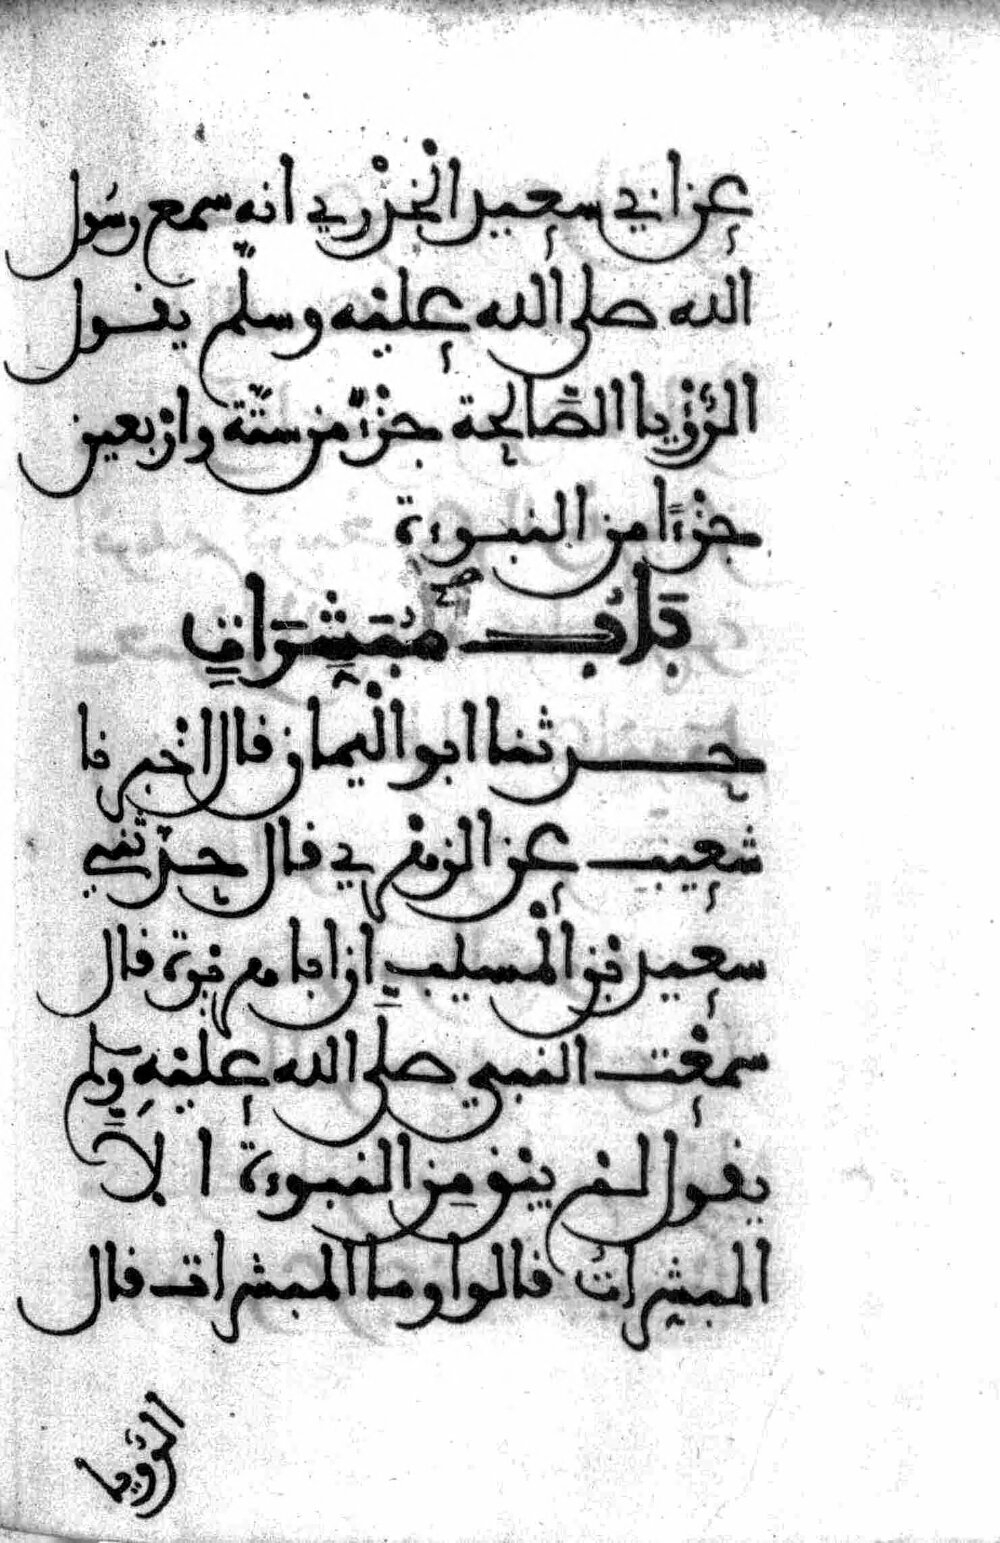 عن ابي سعيد الخدري انه سمع رسول
الله صلى الله عليه وسلم يقول
الرؤيا الصالحة جزء من ستة واربعين
جزءا من النبوءة
باب مبشرات
حدثنا ابو اليمان قال اخبرنا
شعيب عن الزهري قال حدثني
سعيد بن المسيب ان ابا هريرة قال
سمعت النبي صلى الله عليه وسلم
يقول لم يبق من النبوءة الا
المبشرات قالوا وما المبشرات قال
الرؤيا